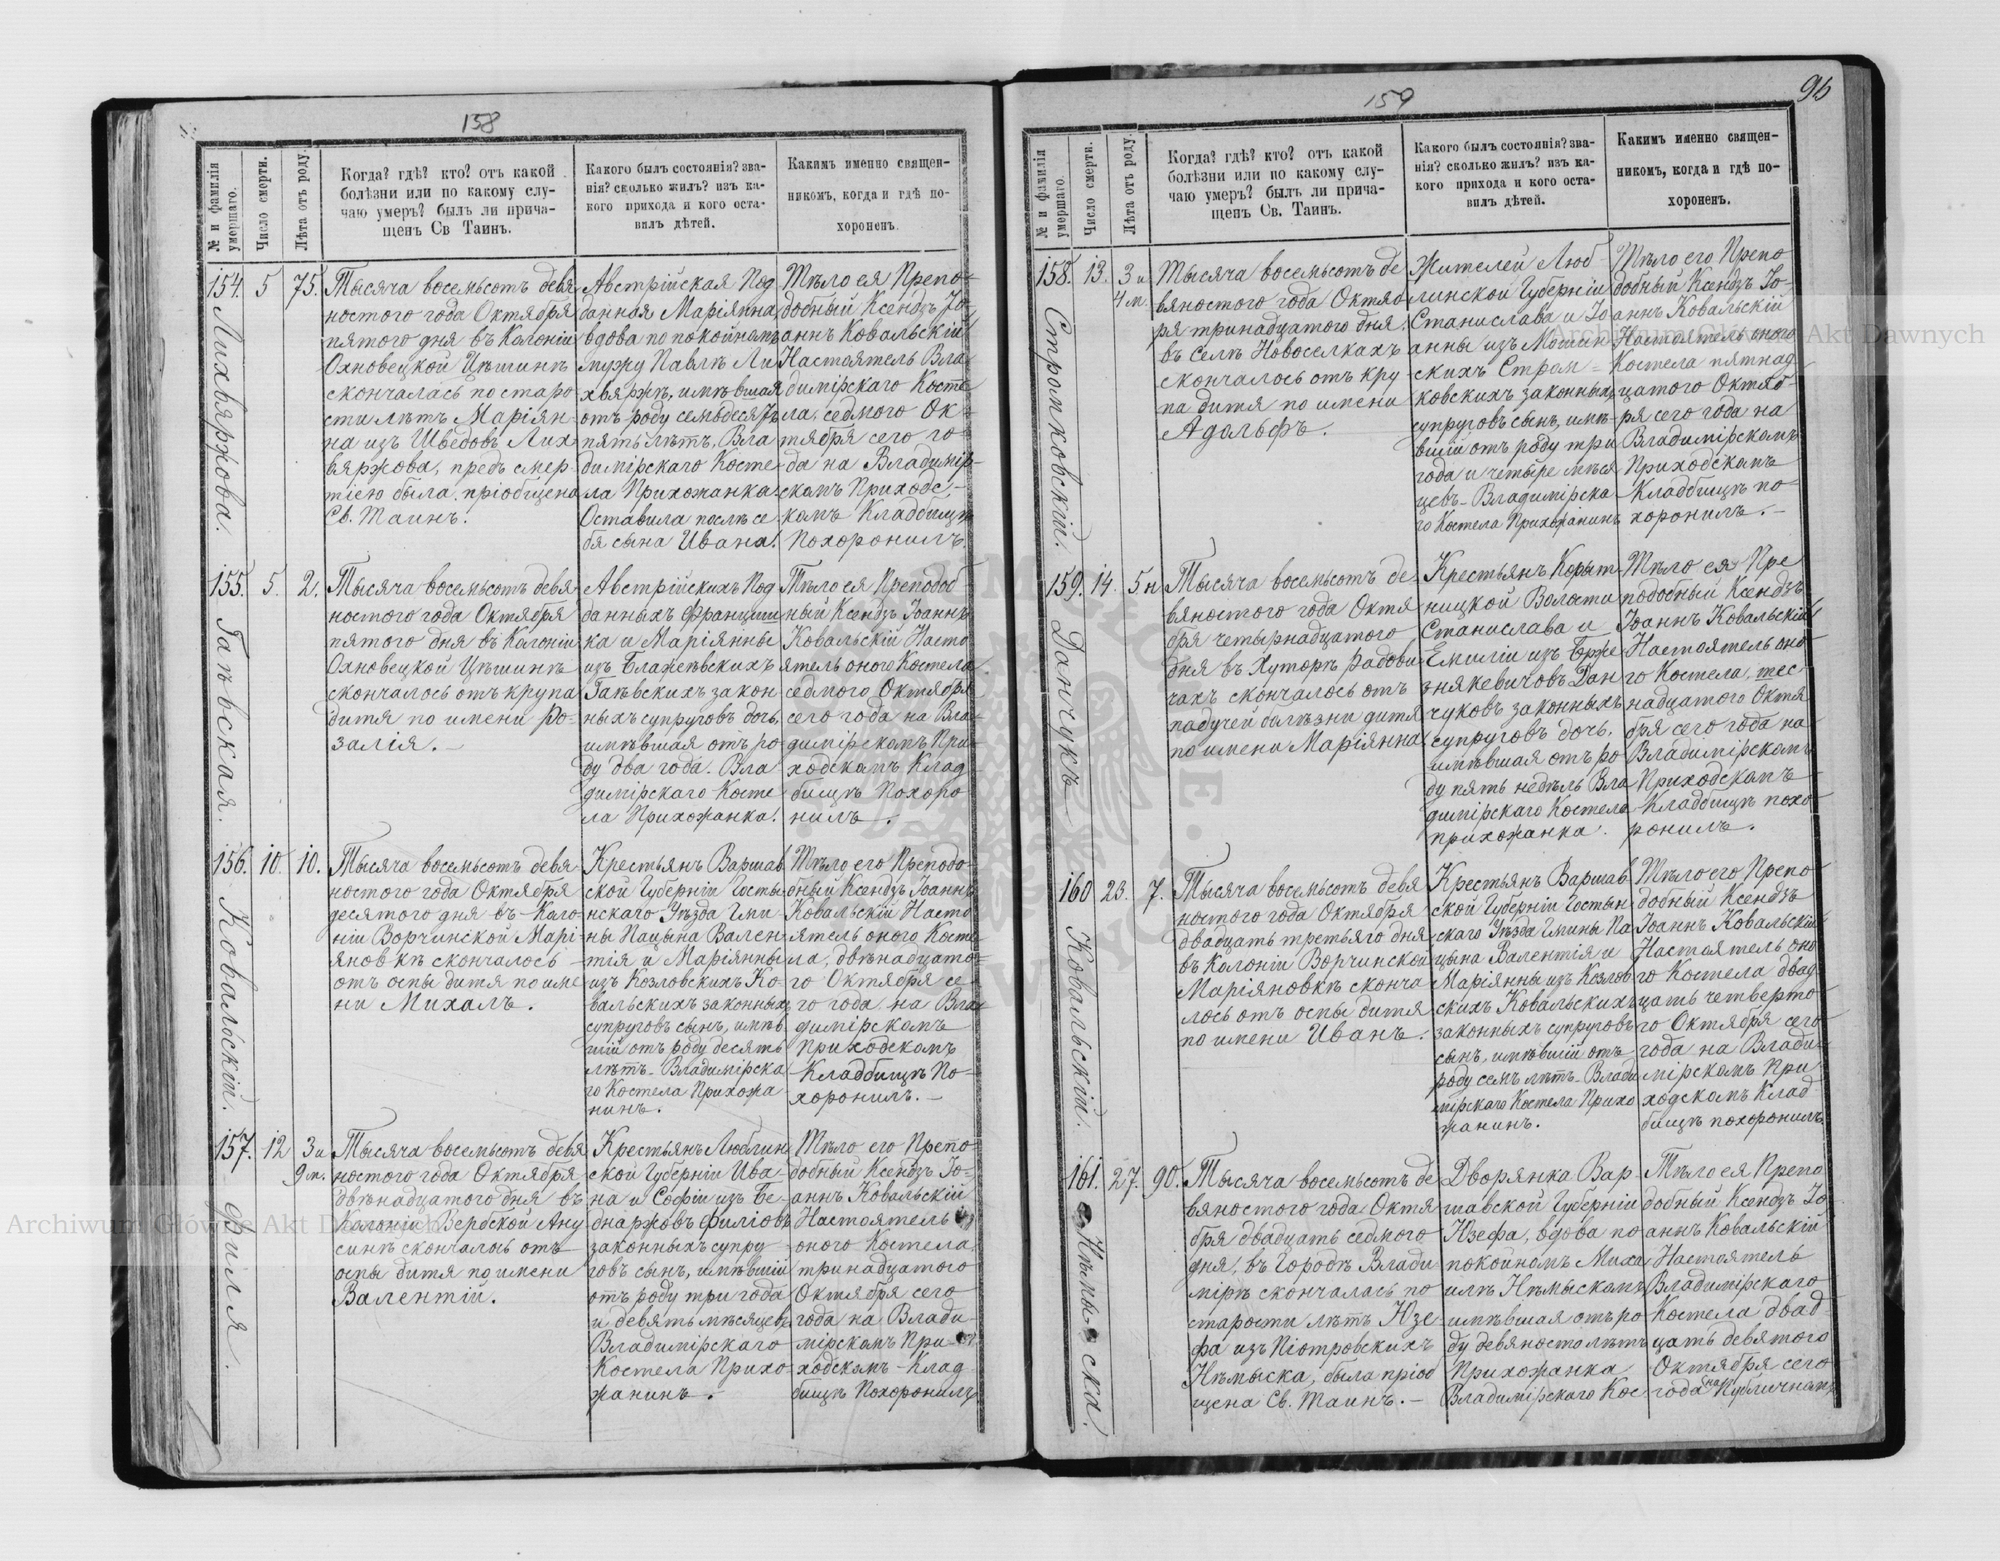 158
№ и фамилія умершаго.
Число смерти.
Лѣта отъ роду.
Когда? гдѣ? кто? отъ какой
болѣзни или по какому слу-
чаю умеръ? былъ ли прича-
щенъ Св Таинъ.
Какого былъ состоянія? зва-
нія? сколько жилъ? изъ ка-
кого прихода и кого оста-
вилъ дѣтей.
Какимъ именно священ-
никомъ, когда и гдѣ по-
хороненъ.
154.
Лихвяржова.
5
75.
Тысяча восемьсотъ девя
ностого года Октября
пятого дня въ Колоніи
Охновецкой Цѣшинѣ
скончалась по старо
сти лѣтъ Маріян-
на изъ Шведовъ Лих
вяржова, предъ смер-
тіею была пріобщена
Св. Таинъ.
Австрійская Под
данная Маріянна
вдова по покойномъ
мужу Павлѣ Ли
хвяржѣ, имѣвшая
отъ роду семьдесятъ
пять лѣтъ, Вла
димірскаго Косте-
ла Прихожанка.
Оставила послѣ се-
бя сына Ивана.
Тѣло ея Препо-
добный Ксендзъ Іо-
аннъ Ковальскій
Настоятель Вла
димірскаго Косте
ла, седмого Ок-
тября сего го-
да на Владимір-
скомъ Приходс-
комъ Кладбищѣ
Похоронилъ.
155.
Гаѣвская.
5.
2.
Тысяча восемьсотъ девя-
ностого года Октября
пятого дня въ Колоніи
Охновецкой Цѣшинѣ
скончалось отъ крупа
дитя по имени Ро-
залія.
Австрійскихъ Под
данныхъ Франциш
ка и Маріянны
изъ Блажеѣвскихъ
Гаѣвскихъ закон
ныхъ супруговъ дочь,
имѣвшая отъ ро-
ду два года. Вла
димірскаго Косте
ла Прихожанка.
Тѣло ея Преподоб
ный Ксендзъ Іоаннъ
Ковальскій Насто
ятель оного Костела
седмого Октября
сего года на Вла-
димірскомъ При-
ходскомъ Клад-
бищѣ Похоро
нилъ.
156.
Ковальскій.
10.
10.
Тысяча восемьсотъ девя
ностого года Октября
десятого дня въ Коло-
ніи Ворчинской Марі-
яновкѣ скончалось
отъ оспы дитя по име
ни Михалъ.
Крестьянъ Варшав
ской Губерніи Госты-
нскаго Уѣзда Гми
ны Пацына Вален-
тія и Маріянны
изъ Козловскихъ Ко-
вальскихъ законныхъ
супруговъ сынъ, имѣв
шій отъ роду десять
лѣтъ - Владимірска
го Костела Прихожа
нинъ.
Тѣло его Преподо-
бный Ксендзъ Іоаннъ
Ковальскій Насто
ятель оного Косте-
ла, двѣнадцато-
го Октября се-
го года на Вла-
димірскомъ
Приходскомъ
Кладбищѣ По-
хоронилъ.
157.
Филя.
12
3 и
9 м.
Тысяча восемьсотъ девя
ностого года Октября
двѣнадцатого дня въ
Колоніи Вербской Ану
синѣ скончалось отъ
оспы дитя по имени
Валентій.
Крестьянъ Люблин
ской Губерніи Ива-
на и Софіи изъ Бе-
днаржовъ Филіовъ
законныхъ супру-
говъ сынъ, имѣвшій
отъ роду три года
и девять мѣсяцевъ
Владимірскаго
Костела Прихо-
жанинъ.
Тѣло его Препо-
добный Ксендзъ Іо-
аннъ Ковальскій
Настоятель
оного Костела,
тринадцатого
Октября сего
года на Влади-
мірскомъ При-
ходскомъ Клад
бищѣ Похоронилъ
159
96
№ и фамилія умершаго.
Число смерти.
Лѣта отъ роду.
Когда? гдѣ? кто? отъ какой
болѣзни или по какому слу-
чаю умеръ? былъ ли прича-
щенъ Св. Таинъ.
Какого былъ состоянія? зва-
нія? сколько жилъ? изъ ка-
кого прихода и кого оста-
вилъ дѣтей.
Какимъ именно священ-
никомъ, когда и гдѣ по-
хороненъ.
158.
Стромковскій.
13.
3 и
4 м.
Тысяча восемьсотъ де
вяностого года Октяб
ря тринадцатого дня
въ селѣ Новоселкахъ
скончалось отъ кру-
па дитя по имени
Адольфъ.
Жителей Люб-
линской Губерніи
Станислава и Іо
анны изъ Мошин
скихъ Стром-
ковскихъ законныхъ
супруговъ сынъ, имѣ-
вшій отъ роду три
года и четыре мѣся
цевъ - Владимірска
го Костела Прихожанинъ
Тѣло его Препо
добный Ксендзъ Іо-
аннъ Ковальскій
Настоятель оного
Костела пятнад
цатого Октяб-
ря сего года на
Владимірскомъ
Приходскомъ
Кладбищѣ по-
хоронилъ.
159.
Данчукъ
14.
5 н
Тысяча восемьсотъ де-
вяностого года Октя
бря четырнадцатого
дня въ Хуторѣ Радови
чахъ скончалось отъ
падучей болѣзни дитя
по имени Маріянна
Крестьянъ Корыт
ницкой Волости
Станислава и
Емиліи изъ Бже-
знякевичовъ Дан
чуковъ законныхъ
супруговъ дочь,
имѣвшая отъ ро
ду пять недѣль Вла
димірскаго Костела
прихожанка.
Тѣло ея Пре
подобный Ксендзъ
Іоаннъ Ковальскій
Настоятель оно-
го Костела, шес-
надцатого Октя
бря сего года на
Владимірскомъ
Приходскомъ
Кладбищѣ похо-
ронилъ.
160
Ковальскій.
23.
7.
Тысяча восемьсотъ девя
ностого года Октября
двадцать третьяго дня
въ Колоніи Ворчинской
Маріяновкѣ сконча
лось отъ оспы дитя
по имени Иванъ.
Крестьянъ Варшав
ской Губерніи Гостын
скаго Уѣзда Гмины Па
цына Валентія и
Маріянны изъ Козлов
скихъ Ковальскихъ
законныхъ супруговъ
сынъ, имѣвшій отъ
роду семъ лѣтъ - Влади
мірскаго Костела Прихо
жанинъ.
Тѣло его Препо-
добный Ксендзъ
Іоаннъ Ковальскій
Настоятель оно
го Костела двад
цать четверто
го Октября сего
года на Влади-
мірскомъ При
ходскомъ Клад
бищѣ похоронилъ
161.
27.
90.
Тысяча восемьсотъ де
вяностого года Октя
бря двадцать седмого
дня, въ Городѣ Влади
мірѣ скончалась по
старости лѣтъ Юзе-
фа изъ Піотровскихъ
Нѣмыска, была пріоб
щена Св. Таинъ.
Дворянка Вар-
шавской Губерніи
Юзефа, вдова по
покойномъ Миха
илѣ Нѣмыскомъ
имѣвшая отъ ро
ду девяносто лѣтъ
Прихожанка
Владимірскаго Кос
Тѣло ея Препо
добный Ксендзъ Іо
аннъ Ковальскій
Настоятель
Владимірскаго
Костела двад-
цать девятого
Октября сего
года на Публичномъ
Archiwum Główne Akt Dawnych
Archiwum Główne Akt Dawnych